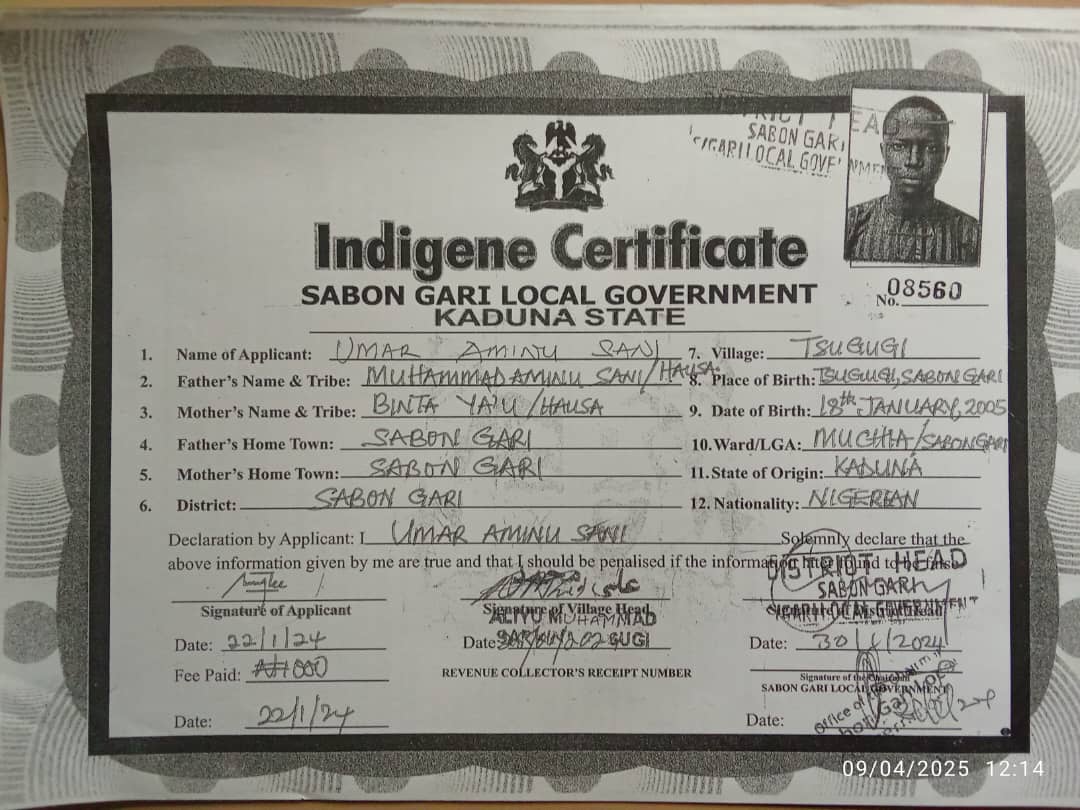 SABON GARI
Indigene Certificate
SABON GARI LOCAL GOVERNMENT
KADUNA STATE
No. 08560
1. Name of Applicant: UMAR AMINU SANI
7. Village: TSUGUGI
2. Father's Name & Tribe: MUHAMMAD AMINU SANI/HAUSA
8. Place of Birth: TSUGUGI, SABON GARI
3. Mother's Name & Tribe: BINTA YA'U/HAUSA
9. Date of Birth: 18th JANUARY, 2005
4. Father's Home Town: SABON GARI
10. Ward/LGA: MUCHIA/SABON GARI
5. Mother's Home Town: SABON GARI
11. State of Origin: KADUNA
6. District: SABON GARI
12. Nationality: NIGERIAN
Declaration by Applicant: I UMAR AMINU SANI Solemnly declare that the
above information given by me are true and that I should be penalised if the information
DISTRICT HEAD
SABON GARI
Signature of Applicant
Signature of Village Head
ALIYU MUHAMMAD
Date: 22/1/24
Date:
Date: 30/1/2024
Fee Paid: ₦1000
REVENUE COLLECTOR'S RECEIPT NUMBER
Signature of the Chairman
SABON GARI LOCAL GOVERNMENT
Office of the
Date: 22/1/24
Date:
09/04/2025 12:14